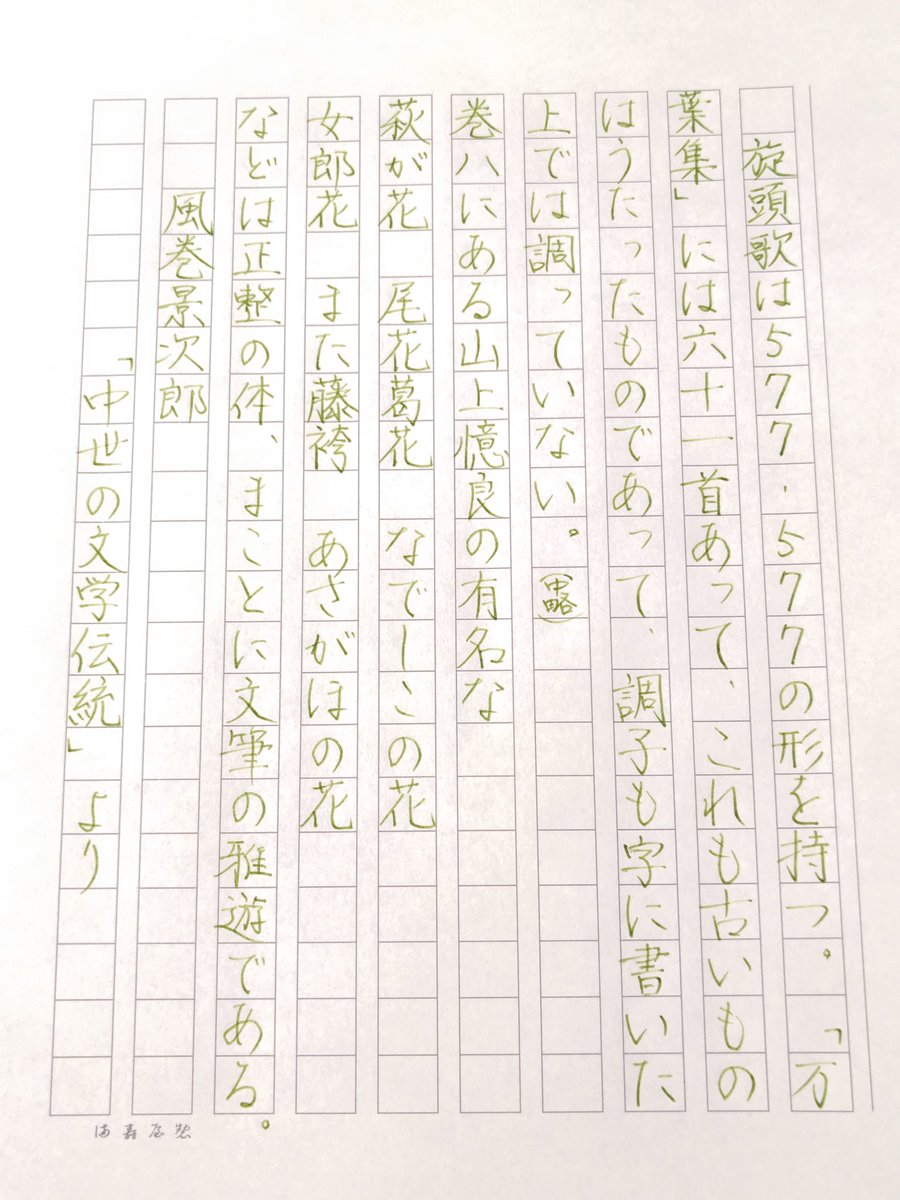 旋頭歌は５７７・５７７の形を持つ。「万
葉集」には六十一首あって、これも古いもの
はうたったものであって、調子も字に書いた
上では調っていない。（中略）
巻八にある山上憶良の有名な
萩が花　尾花葛花　なでしこの花
女郎花　また藤袴　あさがほの花
などは正整の体、まことに文筆の雅遊である。
風巻景次郎
「中世の文学伝統」より
満寿屋製